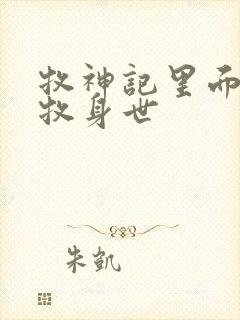 牧神記里而
牧身世
朱凱